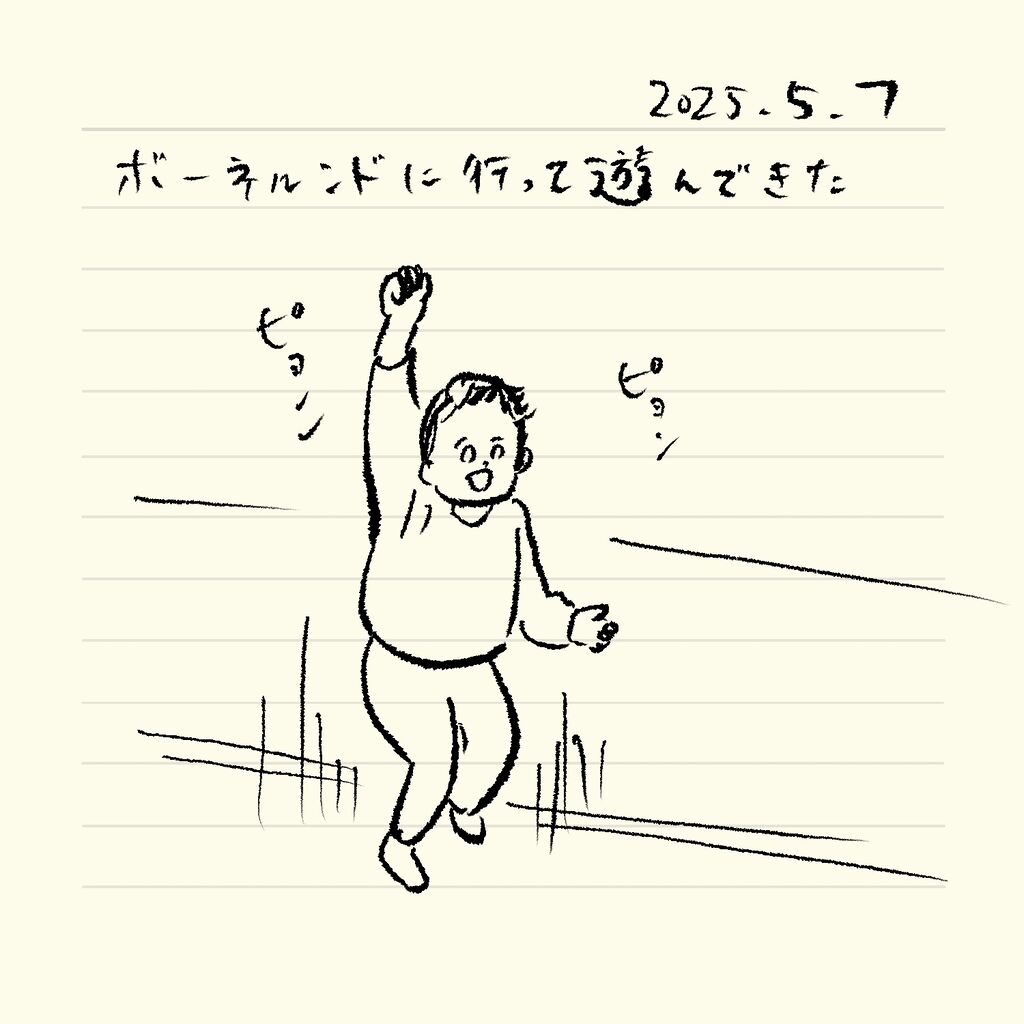 2025.5.7
ボーネルンドに行って遊んできた
ピョンッ
ピョン